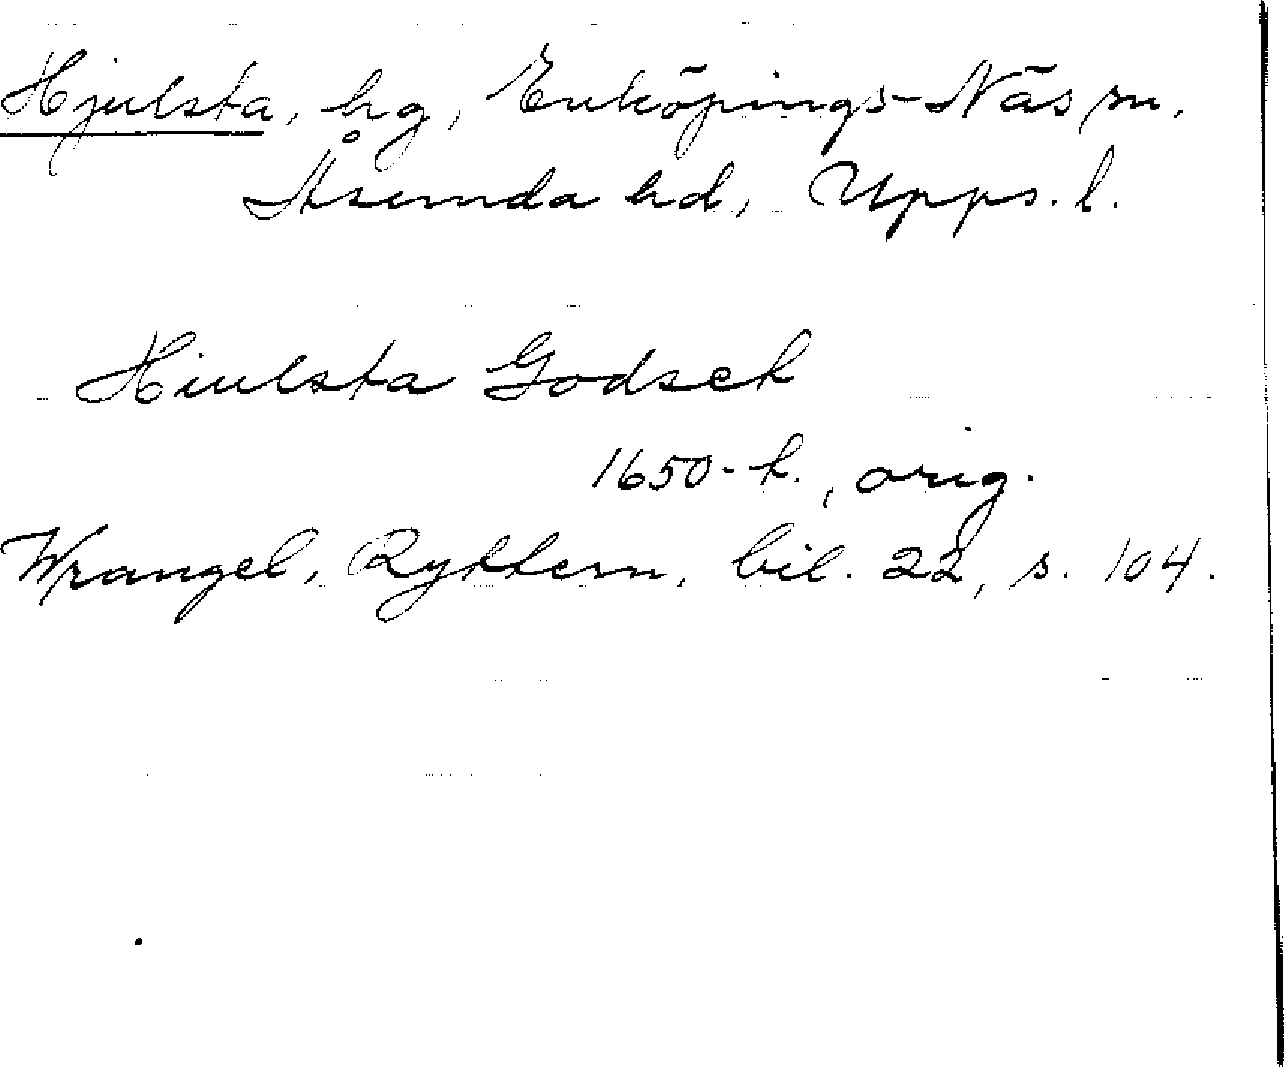 Hjulsta, hg, Enköpings-Näs sn,
Åsunda hd, Upps. l.
Hiulsta Godsch
1650-t., orig.
Wrangel, Ryttern, bil. 22, s. 104.